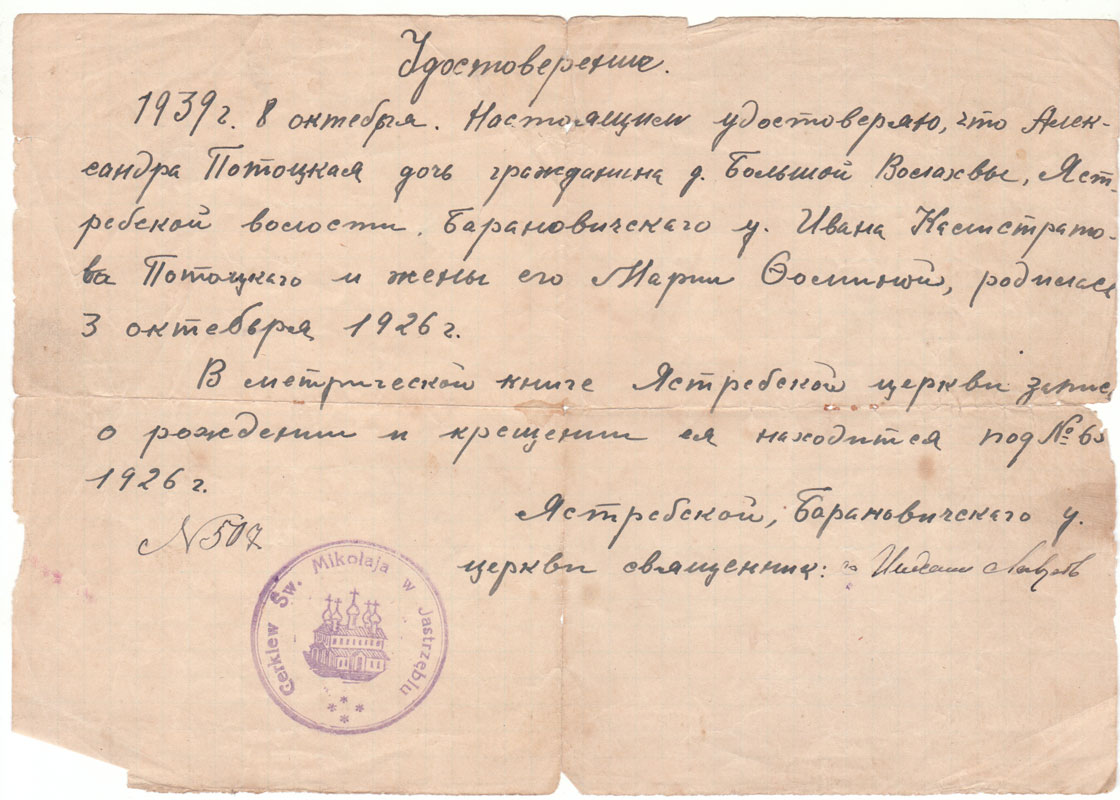 Удостоверение.
1939 г. 8 октебря. Настоящим удостоверяю, что Алек-
сандра Потоцкая дочь гражданина д. Большой Волахвы, Яст-
ребской волости, Барановичскаго у. Ивана Калистрато-
ва Потоцкаго и жены его Марии Ѳоминой, родилась
3 октебря 1926 г.
В метрической книге Ястребской церкви запис
о рождении и крещении ея находится под № 6
1926 г.
Ястребской, Барановичскаго у.
N 507
церкви священник:
Cerkiew Św. Mikołaja w Jastrzęblu